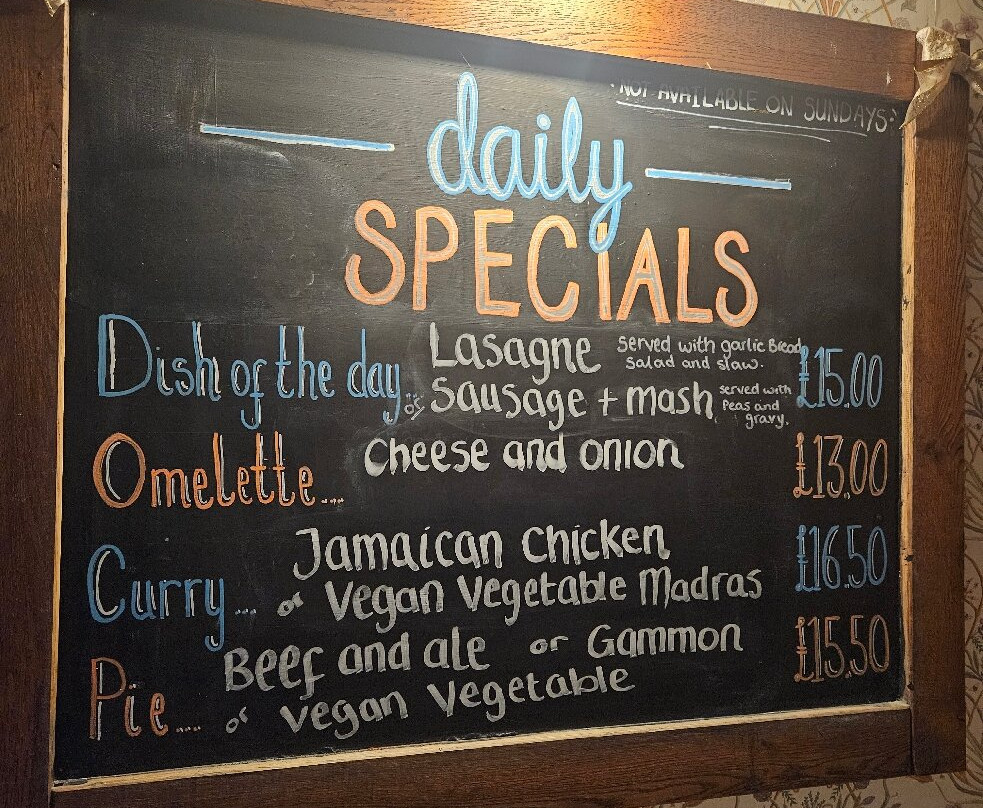 ·NOT AVAILABLE ON SUNDAYS·
daily
SPECIALS
Dish of the day or Lasagne served with garlic Bread, salad and slaw. £15.00
Sausage + mash served with Peas and gravy.
Omelette.... Cheese and onion £13.00
Curry... Jamaican Chicken £16.50
or Vegan Vegetable Madras
Pie.... Beef and ale or Gammon £15.50
or Vegan Vegetable